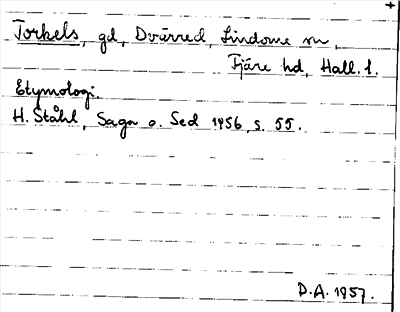 Torkels, gd, Dvärred, Lindome sn,
Fjäre hd, Hall. l.
Etymologi.
H. Ståhl, Saga o. Sed 1956, s. 55.
D.A. 1957.